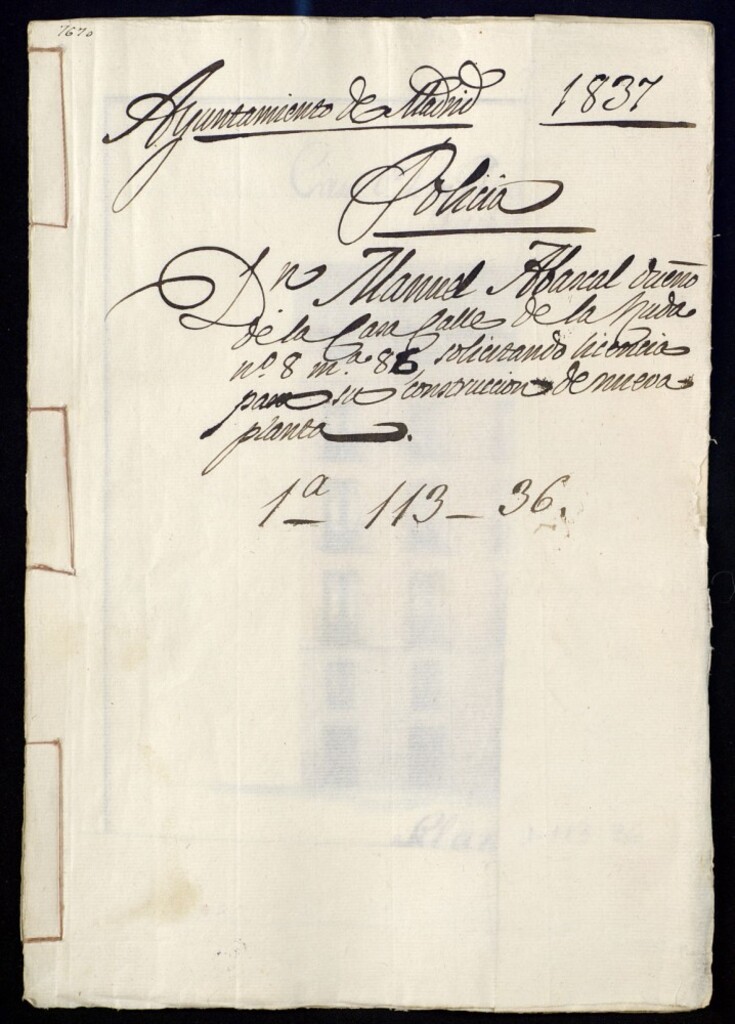 7670
Ayuntamiento de Madrid 1837
Policia
Dn Manuel Abascal dueño
de la Casa Calle de la Ruda
nº 8 mª 86 solicitando licencia
para su construccion de nueva
planta.
1ª 113-36.